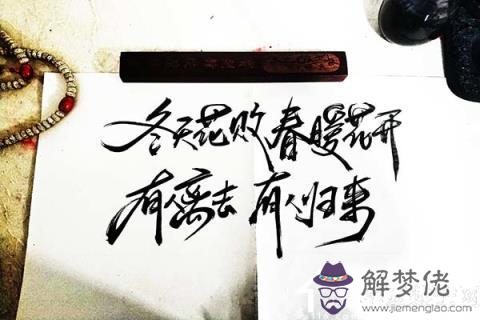 冬天花败 春暖花开
有人离去 有人归来
解梦佬
www.jiemenglao.com